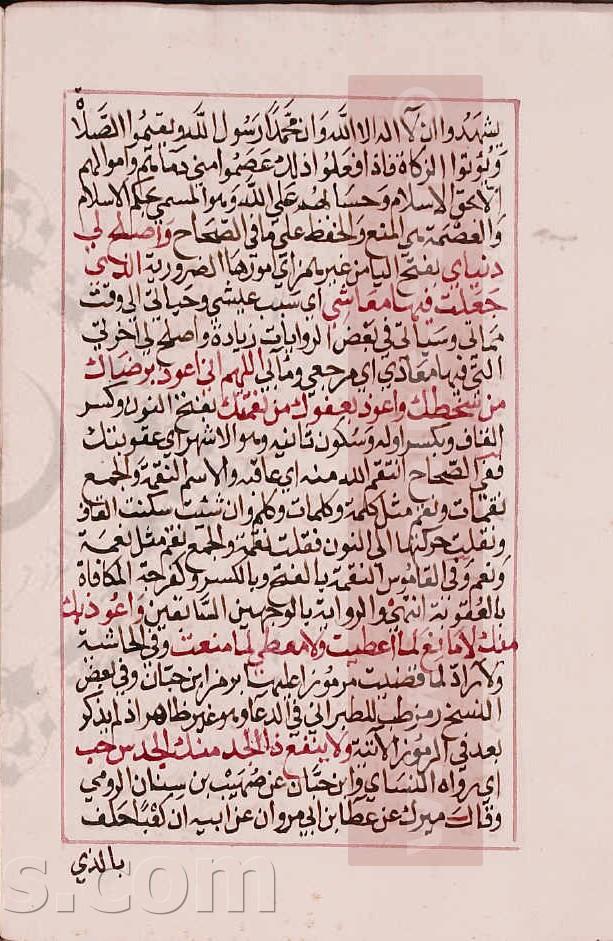 يشهدوا ان لا اله الا الله وان محمدا رسول الله ويقيموا الصلاة
ويؤتوا الزكاة فاذا فعلوا ذلك عصموا مني دماءهم واموالهم
الا بحق الاسلام وحسابهم على الله وهو المسمى بحكم الاسلام
والعصمة هي المنع والحفظ على ما في الصحاح واصلح لي
دنياي بفتح اليا من غير همز اي امورها الضرورية التي
جعلت فيها معاشي اي سبب عيشي وحياتي الى وقت
مماتي وسياتي في بعض الروايات زيادة واصلح لي اخرتي
التي فيها معادي اي مرجعي ومآبي اللهم اني اعوذ برضاك
من سخطك واعوذ بعفوك من نقمتك بفتح النون وكسر
القاف وبكسر اوله وسكون ثانيه وهو الاشهر اي عقوبتك
ففي الصحاح انتقم الله منه اي عاقبه والاسم النقمة والجمع
نقمات ونقم مثل كلمة وكلمات وكلم وان شئت سكنت القاف
ونقلت حركتها الى النون فقلت نقمة والجمع نقم مثل نعمة
ونعم وفي القاموس النقمة بالفتح وبالكسر وكفرحة المكافاة
بالعقوبة انتهى والرواية بالوجهين السابقين واعوذ بك
منك لا مانع لما اعطيت ولا معطي لما منعت وفي الحاشية
ولا راد لما قضيت مرموزا عليها برمز ابن حبان وفي بعض
النسخ رمز طب للطبراني في الدعا وهو غير ظاهر اذ لم يذكر
بعد في الرموز الاتية ولا ينفع ذا الجد منك الجد س حب
اي رواه النساي وابن حبان عن صهيب بن سنان الرومي
وقال ميرك عن عطا بن ابي مروان عن ابيه ان كعبا حلف
بالذي
s.com